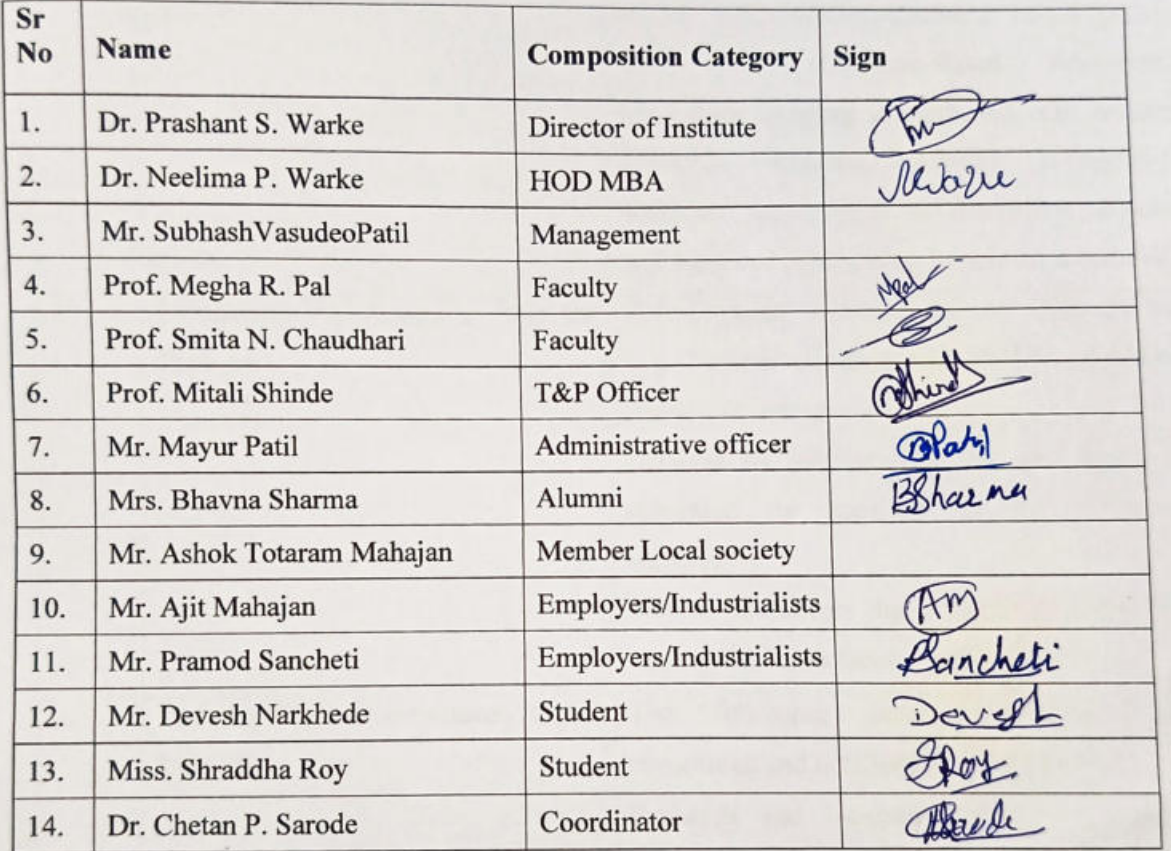 Sr No Name Composition Category Sign
1. Dr. Prashant S. Warke Director of Institute
2. Dr. Neelima P. Warke HOD MBA
3. Mr. SubhashVasudeoPatil Management
4. Prof. Megha R. Pal Faculty
5. Prof. Smita N. Chaudhari Faculty
6. Prof. Mitali Shinde T&P Officer
7. Mr. Mayur Patil Administrative officer
8. Mrs. Bhavna Sharma Alumni BSharma
9. Mr. Ashok Totaram Mahajan Member Local society
10. Mr. Ajit Mahajan Employers/Industrialists AM
11. Mr. Pramod Sancheti Employers/Industrialists Sancheti
12. Mr. Devesh Narkhede Student Devesh
13. Miss. Shraddha Roy Student SRoy
14. Dr. Chetan P. Sarode Coordinator